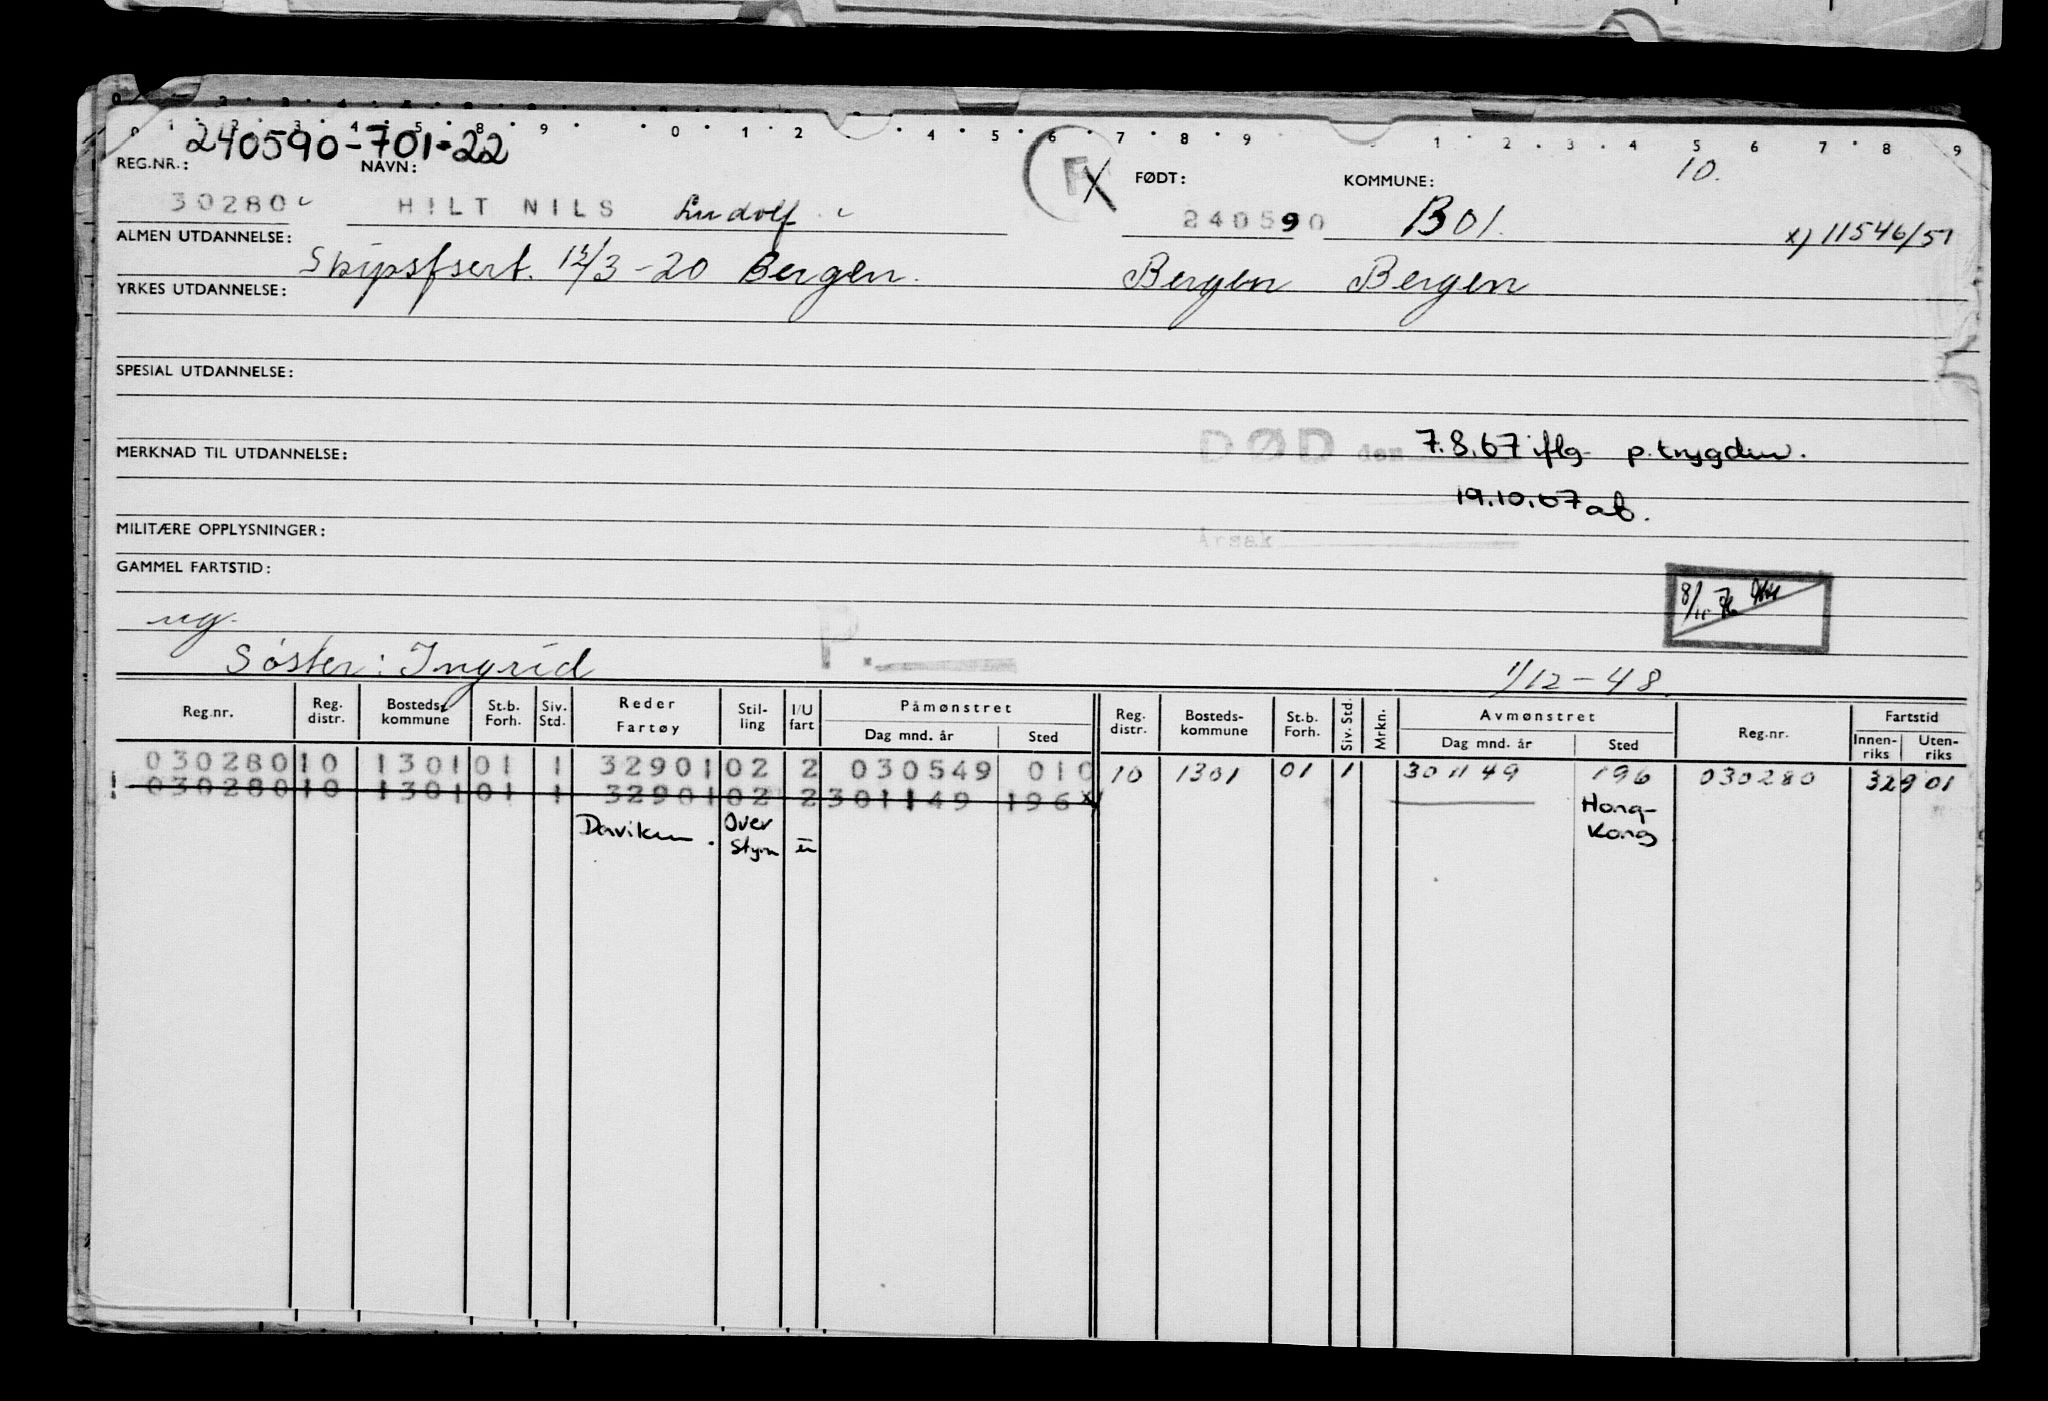 0 1 2 3 4 5 8 9 0 1 2 4 5 6 7 8 9 1 2 3 4 5 6 7 8 9
240590-701-22
REG.NR.: NAVN: F X FØDT: KOMMUNE: 10.
30280 HILT NILS Ludolf 240590 B01. x) 11546/51
ALMEN UTDANNELSE: Skipsfsert. 12/3-20 Bergen. Bergen Bergen
YRKES UTDANNELSE:
SPESIAL UTDANNELSE:
MERKNAD TIL UTDANNELSE: DØD den 7.8.67 iflg. p.trygden.
19.10.67 ab.
MILITÆRE OPPLYSNINGER: Årsak
GAMMEL FARTSTID:
ug. P.
Søster: Ingrid 1/12-48.
Reg.nr. Reg. distr. Bosteds- kommune St.b. Forh. Siv. Std. Reder Fartøy Stil- ling I/U fart Påmønstret Dag mnd. år Sted Reg. distr. Bosteds- kommune St.b. Forh. Siv. Std. Mrkn. Avmønstret Dag mnd. år Sted Reg.nr. Fartstid Innen- riks Uten- riks
030280 10 1301 01 1 32901 02 2 030549 010 10 1301 01 1 301149 196 030280 32901
030280 10 1301 01 1 32901 02 2 301149 196 x Hong-
Daviken. Over Kong
Styrm